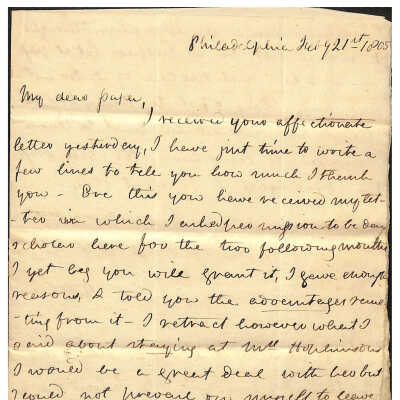 Philadelphia July 21st 1805
My dear papa,
I receive your affectionate
letter yesterday, I have just time to write a
few lines to tell you how much I thank
you - Ere this you have received my let-
-ter in which I asked permission to be day
scholar here for the two following months
I yet beg you will grant it, I gave enough
reasons, & told you the advantages resul-
-ting from it - I retract however what I
said about staying at Mrs Hopkinsons
I would be a great deal with her but
could not prevail on myself to leave